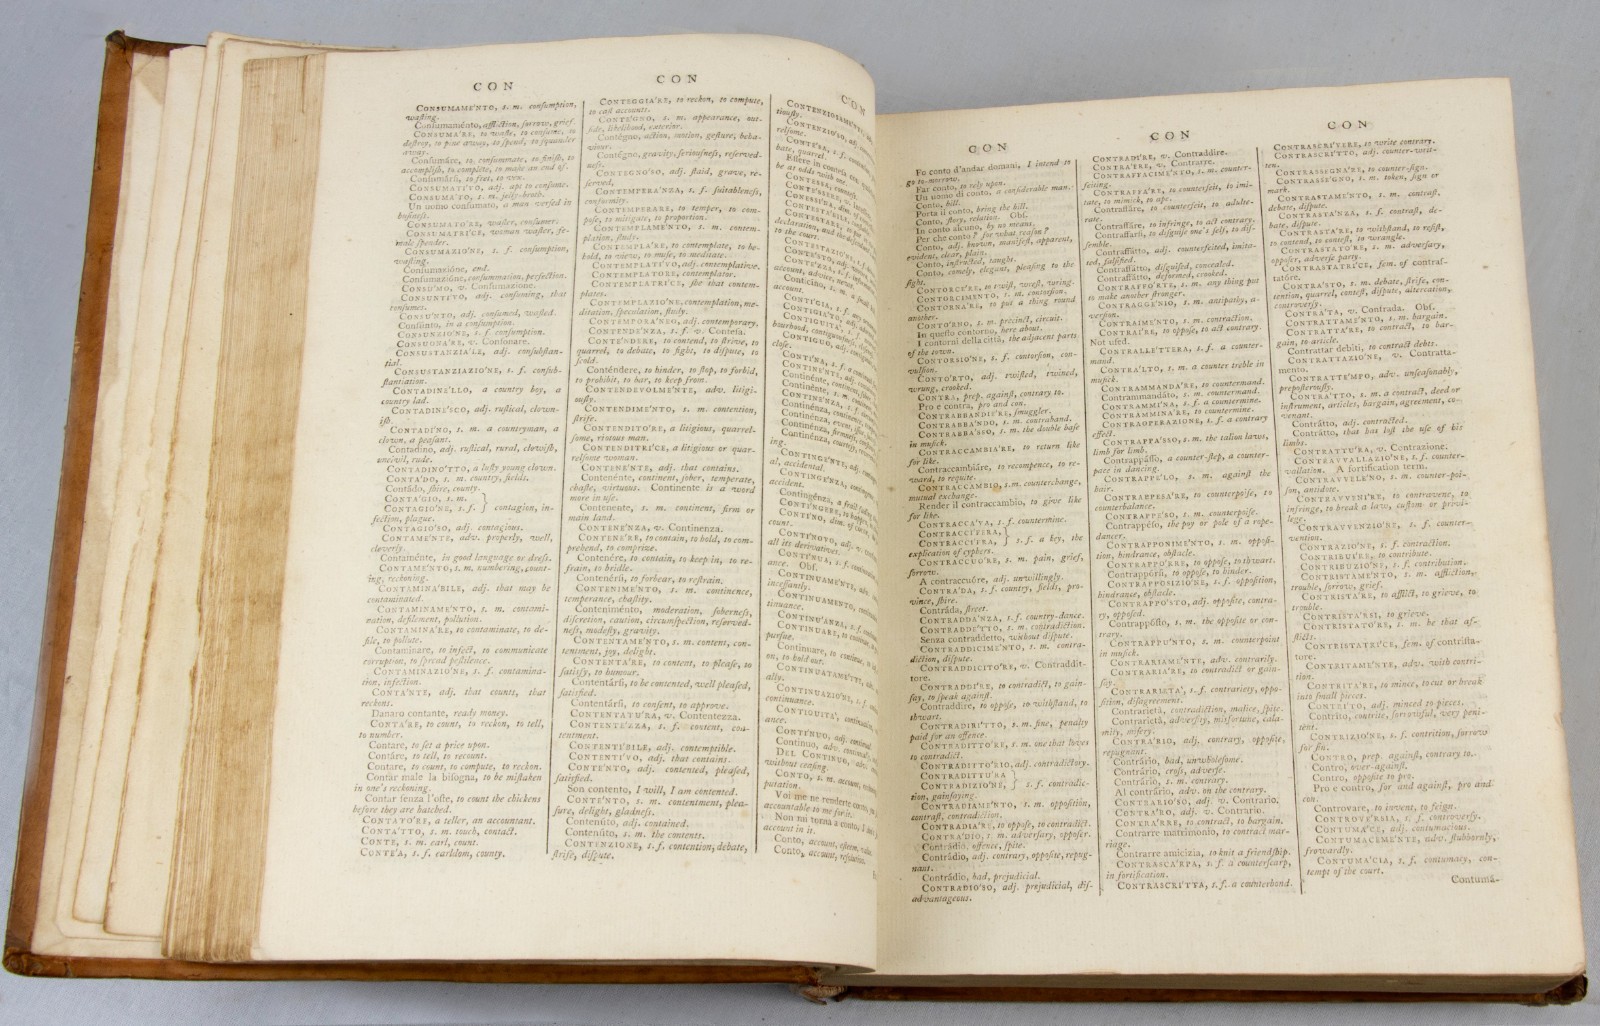 CON
CONSUMAME'NTO, s. m. consumption,
wasting.
Consumaménto, affliction, sorrow, grief.
CONSUMA'RE, to waste, to consume, to
destroy, to pine away, to spend, to squander
away.
Consumáre, to consummate, to finish, to
accomplish, to complete, to make an end of.
Consumársi, to fret, to vex.
CONSUMATI'VO, adj. apt to consume.
CONSUMA'TO, s. m. jelly-broth.
Un uomo consumato, a man versed in
business.
CONSUMATO'RE, waster, consumer.
CONSUMATRI'CE, woman waster, fe-
male spender.
CONSUMAZIO'NE, s. f. consumption,
wasting.
Consumazióne, end.
Consumazióne, consummation, perfection.
CONSU'MO, v. Consumazione.
CONSUNTI'VO, adj. consuming, that
consumes.
CONSU'NTO, adj. consumed, wasted.
Consúnto, in a consumption.
CONSUNZIO'NE, s. f. consumption.
CONSUONA'RE, v. Consonare.
CONSUSTANZIA'LE, adj. consubstan-
tial.
CONSUSTANZIAZIO'NE, s. f. consub-
stantiation.
CONTADINE'LLO, a country boy, a
country lad.
CONTADINE'SCO, adj. rustical, clown-
ish.
CONTADI'NO, s. m. a countryman, a
clown, a peasant.
Contadíno, adj. rustical, rural, clownish,
uncivil, rude.
CONTADINO'TTO, a lusty young clown.
CONTA'DO, s. m. country, fields.
Contádo, shire, county.
CONTA'GIO, s. m.
CONTAGIO'NE, s. f. } contagion, in-
fection, plague.
CONTAGIO'SO, adj. contagious.
CONTAME'NTE, adv. properly, well,
cleverly.
Contaménte, in good language or dress.
CONTAME'NTO, s. m. numbering, count-
ing, reckoning.
CONTAMINA'BILE, adj. that may be
contaminated.
CONTAMINAME'NTO, s. m. contami-
nation, defilement, pollution.
CONTAMINA'RE, to contaminate, to de-
file, to pollute.
Contamináre, to infect, to communicate
corruption, to spread pestilence.
CONTAMINAZIO'NE, s. f. contamina-
tion, infection.
CONTA'NTE, adj. that counts, that
reckons.
Danaro contante, ready money.
CONTA'RE, to count, to reckon, to tell,
to number.
Contáre, to set a price upon.
Contáre, to tell, to recount.
Contáre, to count, to compute, to reckon.
Contar male la bisogna, to be mistaken
in one's reckoning.
Contar senza l'oste, to count the chickens
before they are hatched.
CONTATO'RE, a teller, an accountant.
CONTA'TTO, s. m. touch, contact.
CONTE, s. m. earl, count.
CONTE'A, s. f. earldom, county.
CON
CONTEGGIA'RE, to reckon, to compute,
to cast accounts.
CONTE'GNO, s. m. appearance, out-
side, likelihood, exterior.
Contégno, action, motion, gesture, beha-
viour.
Contégno, gravity, seriousness, reserved-
ness.
CONTEGNO'SO, adj. staid, grave, re-
served.
CONTEMPERA'NZA, s. f. suitableness,
conformity.
CONTEMPERARE, to temper, to com-
pose, to mitigate, to proportion.
CONTEMPLAMENTO, s. m. contem-
plation, study.
CONTEMPLA'RE, to contemplate, to be-
hold, to view, to muse, to meditate.
CONTEMPLATI'VO, adj. contemplative.
CONTEMPLATORE, contemplator.
CONTEMPLATRI'CE, she that contem-
plates.
CONTEMPLAZIO'NE, contemplation, me-
ditation, speculation, study.
CONTEMPORA'NEO, adj. contemporary.
CONTENDE'NZA, s. f. v. Contésa.
CONTE'NDERE, to contend, to strive, to
quarrel, to debate, to fight, to dispute, to
scold.
Conténdere, to hinder, to stop, to forbid,
to prohibit, to bar, to keep from.
CONTENDEVOLME'NTE, adv. litigi-
ously.
CONTENDIME'NTO, s. m. contention,
strife.
CONTENDITO'RE, a litigious, quarrel-
some, riotous man.
CONTENDITRI'CE, a litigious or quar-
relsome woman.
CONTENE'NTE, adj. that contains.
Contenénte, continent, sober, temperate,
chaste, virtuous. Continente is a word
more in use.
Contenente, s. m. continent, firm or
main land.
CONTENE'NZA, v. Continenza.
CONTENE'RE, to contain, to hold, to com-
prehend, to comprize.
Contenére, to contain, to keep in, to re-
frain, to bridle.
Contenérsi, to forbear, to restrain.
CONTENIME'NTO, s. m. continence,
temperance, chastity.
Conteniménto, moderation, soberness,
discretion, caution, circumspection, reserved-
ness, modesty, gravity.
CONTENTAME'NTO, s. m. content, con-
tentment, joy, delight.
CONTENTA'RE, to content, to please, to
satisfy, to humour.
Contentársi, to be contented, well pleased,
satisfied.
Contentársi, to consent, to approve.
CONTENTATU'RA, v. Contentezza.
CONTENTE'ZZA, s. f. content, con-
tentment.
CONTENTI'BILE, adj. contemptible.
CONTENTI'VO, adj. that contains.
CONTE'NTO, adj. contented, pleased,
satisfied.
Son contento, I will, I am contented.
CONTE'NTO, s. m. contentment, plea-
sure, delight, gladness.
Contenúto, adj. contained.
Contenúto, s. m. the contents.
CONTENZIONE, s. f. contention, debate,
strife, dispute.
CON
tiously.
relsome.
bate, quarrel.
be at odds with one.
to the court.
account.
close.
ing.
al, accidental.
accident.
count.
all its derivatives.
ance. Obs.
CONTINUAMENTE,
incessantly.
CONTINUAMENTO,
tinuance.
CONTINU'ANZA, s. f.
CONTINUARE, to continue,
pursue.
Continuare, to continue,
on, to hold out.
ally.
CONTINUAZIO'NE,
continuance.
CONTIGUITA',
ance.
CONTI'NUO, adj. continual.
Continuo, adv. continually.
DEL CONTINUO, adv.
without ceasing.
CONTO, s. m. account,
putation.
Voi me ne renderte conto,
accountable to me for it.
Non mi torna a conto, I
account in it.
Conto, account, esteem,
Conto, account,
CON
Fo conto d'andar domani, I intend to
go to-morrow.
Far conto, to rely upon.
Un uomo di conto, a considerable man.
Conto, bill.
Porta il conto, bring the bill.
Conto, story, relation. Obs.
In conto alcuno, by no means.
Per che conto? for what reason?
Conto, adj. known, manifest, apparent,
evident, clear, plain.
Conto, instructed, taught.
Conto, comely, elegant, pleasing to the
sight.
CONTORCE'RE, to twist, wrest, wring.
CONTORCIMENTO, s. m. contorsion.
CONTORNA'RE, to put a thing round
another.
CONTO'RNO, s. m. precinct, circuit.
In questo contorno, here about.
I contorni della città, the adjacent parts
of the town.
CONTORSIO'NE, s. f. contorsion, con-
vulsion.
CONTO'RTO, adj. twisted, twined,
wrung, crooked.
CONTRA, prep. against, contrary to.
Pro e contra, pro and con.
CONTRABBANDIE'RE, smuggler.
CONTRABBA'NDO, s. m. contraband.
CONTRABBA'SSO, s. m. the double base
in musick.
CONTRACCAMBIA'RE, to return like
for like.
Contraccambiáre, to recompence, to re-
ward, to requite.
CONTRACCAMBIO, s. m. counterchange,
mutual exchange.
Render il contraccambio, to give like
for like.
CONTRACCA'VA, s. f. countermine.
CONTRACCI'FERA,
CONTRACCI'FRA, } s. f. a key, the
explication of cyphers.
CONTRACCUO'RE, s. m. pain, grief,
sorrow.
A contraccuóre, adj. unwillingly.
CONTRA'DA, s. f. country, fields, pro-
vince, shire.
Contráda, street.
CONTRADDA'NZA, s. f. country-dance.
CONTRADDE'TTO, s. m. contradiction.
Senza contraddetto, without dispute.
CONTRADDICIME'NTO, s. m. contra-
diction, dispute.
CONTRADDICITO'RE, v. Contraddit-
tore.
CONTRADDI'RE, to contradict, to gain-
say, to speak against.
Contraddire, to oppose, to withstand, to
thwart.
CONTRADIRI'TTO, s. m. fine, penalty
paid for an offence.
CONTRADITTO'RE, s. m. one that loves
to contradict.
CONTRADITTO'RIO, adj. contradictory.
CONTRADITTU'RA
CONTRADIZIO'NE, } s. f. contradic-
tion, gainsaying.
CONTRADIAME'NTO, s. m. opposition,
contrast, contradiction.
CONTRADIA'RE, to oppose, to contradict.
CONTRA'DIO, s. m. adversary, opposer.
Contrádio, offence, spite.
Contrádio, adj. contrary, opposite, repug-
nant.
Contrádio, bad, prejudicial.
CONTRADIO'SO, adj. prejudicial, dis-
advantageous.
CON
CONTRADI'RE, v. Contraddire.
CONTRA'ERE, v. Contrarre.
CONTRAFFACIME'NTO, s. m. counter-
feiting.
CONTRAFFA'RE, to counterfeit, to imi-
tate, to mimick, to ape.
Contraffáre, to counterfeit, to adulte-
rate.
Contraffáre, to infringe, to act contrary.
Contraffársi, to disguise one's self, to dis-
semble.
Contraffátto, adj. counterfeited, imita-
ted, falsified.
Contraffátto, disguised, concealed.
Contraffátto, deformed, crooked.
CONTRAFFO'RTE, s. m. any thing put
to make another stronger.
CONTRAGGE'NIO, s. m. antipathy, a-
version.
CONTRAIME'NTO, s. m. contraction.
CONTRAI'RE, to oppose, to act contrary.
Not used.
CONTRALLE'TTERA, s. f. a counter-
mand.
CONTRA'LTO, s. m. a counter treble in
musick.
CONTRAMMANDA'RE, to countermand.
Contrammandáto, s. m. countermand.
CONTRAMMI'NA, s. f. a countermine.
CONTRAMMINA'RE, to countermine.
CONTRAOPERAZIONE, s. f. a contrary
effect.
CONTRAPPA'SSO, s. m. the talion laws,
limb for limb.
Contrappásso, a counter-step, a counter-
pace in dancing.
CONTRAPPE'LO, s. m. against the
hair.
CONTRAPPESA'RE, to counterpoise, to
counterbalance.
CONTRAPPE'SO, s. m. counterpoise.
Contrappéso, the poy or pole of a rope-
dancer.
CONTRAPPONIMENTO, s. m. opposi-
tion, hindrance, obstacle.
CONTRAPPO'RRE, to oppose, to thwart.
Contrappórsi, to oppose, to hinder.
CONTRAPPOSIZIO'NE, s. f. opposition,
hindrance, obstacle.
CONTRAPPO'STO, adj. opposite, contra-
ry, opposed.
Contrappósto, s. m. the opposite or con-
trary.
CONTRAPPU'NTO, s. m. counterpoint
in musick.
CONTRARIAME'NTE, adv. contrarily.
CONTRARIA'RE, to contradict or gain-
say.
CONTRARIETA', s. f. contrariety, oppo-
sition, disagreement.
Contrarietà, contradiction, malice, spite.
Contrarietà, adversity, misfortune, cala-
mity, misery.
CONTRA'RIO, adj. contrary, opposite,
repugnant.
Contrário, bad, unwholesome.
Contrário, cross, adverse.
Contrário, s. m. contrary.
Al contrário, adv. on the contrary.
CONTRARIO'SO, adj. v. Contrario.
CONTRA'RO, adj. v. Contrario.
CONTRA'RRE, to contract, to bargain.
Contrarre matrimonio, to contract mar-
riage.
Contrarre amicizia, to knit a friendship.
CONTRASCA'RPA, s. f. a counterscarp,
in fortification.
CONTRASCRI'TTA, s. f. a counterbond.
CON
CONTRASCRI'VERE, to write contrary.
CONTRASCRITTO, adj. counter-writ-
ten.
CONTRASSEGNA'RE, to counter-sign.
CONTRASSE'GNO, s. m. token, sign or
mark.
CONTRASTAMENTO, s. m. contrast,
debate, dispute.
CONTRASTA'NZA, s. f. contrast, de-
bate, dispute.
CONTRASTA'RE, to withstand, to resist,
to contend, to contest, to wrangle.
CONTRASTATO'RE, s. m. adversary,
opposer, adverse party.
CONTRASTATRI'CE, fem. of contras-
tatóre.
CONTRA'STO, s. m. debate, strife, con-
tention, quarrel, contest, dispute, altercation,
controversy.
CONTRA'TA, v. Contrada. Obs.
CONTRATTAME'NTO, s. m. bargain.
CONTRATTA'RE, to contract, to bar-
gain, to article.
Contrattar debiti, to contract debts.
CONTRATTAZIO'NE, v. Contratta-
mento.
CONTRATTE'MPO, adv. unseasonably,
preposterously.
CONTRA'TTO, s. m. a contract, deed or
instrument, articles, bargain, agreement, co-
venant.
Contrátto, adj. contracted.
Contrátto, that has lost the use of his
limbs.
CONTRATTU'RA, v. Contrazione.
CONTRAVVALLAZIO'NE, s. f. counter-
vallation. A fortification term.
CONTRAVVELE'NO, s. m. counter-poi-
son, antidote.
CONTRAVVENI'RE, to contravene, to
infringe, to break a law, custom or privi-
lege.
CONTRAVVENZIO'NE, s. f. counter-
vention.
CONTRAZIO'NE, s. f. contraction.
CONTRIBUI'RE, to contribute.
CONTRIBUZIO'NE, s. f. contribution.
CONTRISTAME'NTO, s. m. affliction,
trouble, sorrow, grief.
CONTRISTA'RE, to afflict, to grieve, to
trouble.
CONTRISTA'RSI, to grieve.
CONTRISTATO'RE, s. m. he that af-
flicts.
CONTRISTATRI'CE, fem. of contrista-
tore.
CONTRITAME'NTE, adv. with contri-
tion.
CONTRITA'RE, to mince, to cut or break
into small pieces.
CONTRI'TO, adj. minced to pieces.
Contrito, contrite, sorrowful, very peni-
tent.
CONTRIZIO'NE, s. f. contrition, sorrow
for sin.
CONTRO, prep. against, contrary to.
Contro, over-against.
Contro, opposite to pro.
Pro e contro, for and against, pro and
con.
Controvare, to invent, to feign.
CONTROVE'RSIA, s. f. controversy.
CONTUMA'CE, adj. contumacious.
CONTUMACEME'NTE, adv. stubbornly,
frowardly.
CONTUMA'CIA, s. f. contumacy, con-
tempt of the court.
Contuma-